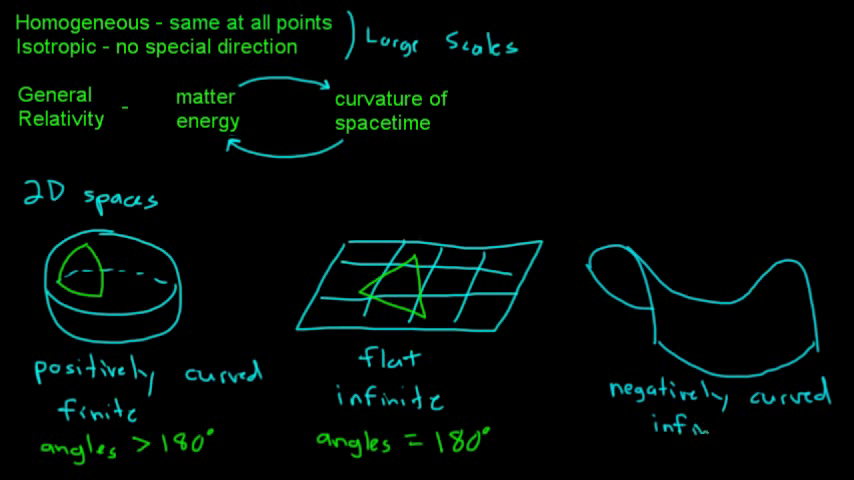 Homogeneous - same at all points
Isotropic - no special direction
Large Scales
General Relativity -
matter energy
curvature of spacetime
2D spaces
positively curved
finite
angles > 180°
flat
infinite
angles = 180°
negatively curved
infin